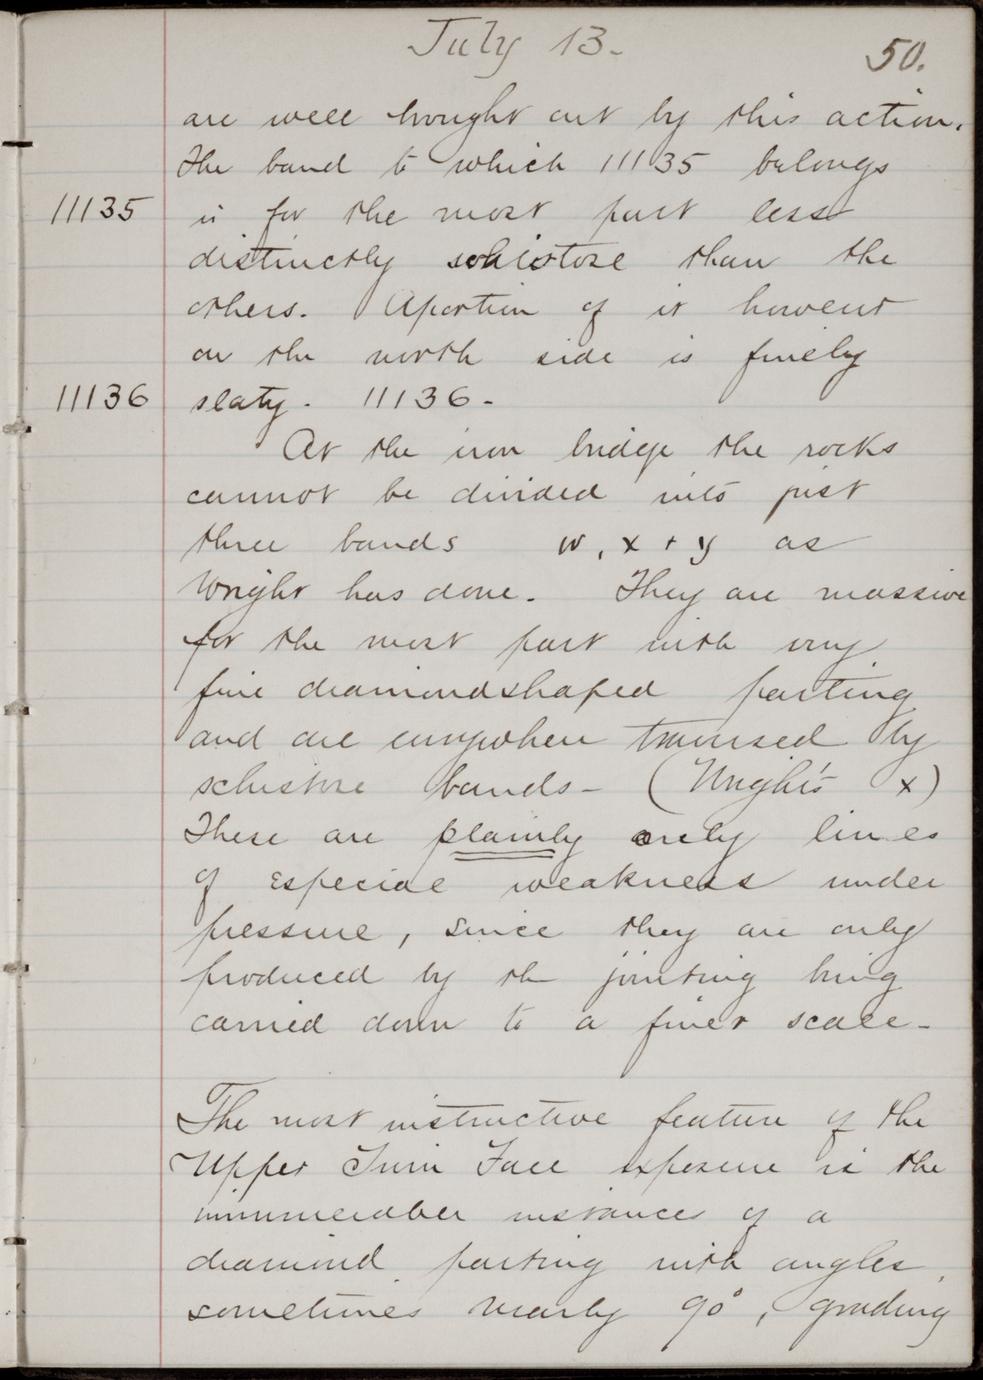 July 13.
50.
are well brought out by this action.
The band to which 11135 belongs
11135 is for the most part less
distinctly schistose than the
others. A portion of it however
on the north side is finely
11136 slaty. 11136.
At the iron bridge the rocks
cannot be divided into just
three bands w, x + y as
Wright has done. They are massive
for the most part with very
fine diamondshaped parting
and are everywhere traversed by
schistose bands - (Wright's x)
These are plainly only lines
of especial weakness under
pressure, since they are only
produced by the jointing being
carried down to a finer scale -
The most instructive feature of the
Upper Twin Fall exposure is the
innumerable instances of a
diamond parting with angles,
sometimes nearly 90°, grading